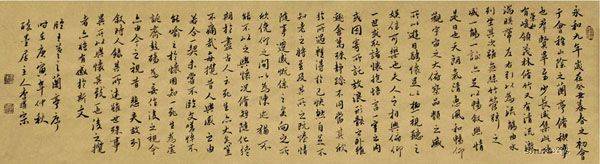 永和九年歲在癸丑暮春之初會
于會稽山陰之蘭亭脩禊事
也群賢畢至少長咸集此地有
崇山峻領茂林脩竹又有清流激
湍映帶左右引以為流觴曲水
列坐其次雖無絲竹管弦之
盛一觴一詠亦足以暢敘幽情
是日也天朗氣清惠風和暢仰
觀宇宙之大俯察品類之盛
所以遊目騁懷足以極視聽之
娛信可樂也夫人之相與俯仰
一世或取諸懷抱悟言一室之內
或因寄所託放浪形骸之外雖
趣舍萬殊靜躁不同當其欣
於所遇暫得於己快然自足不
知老之將至及其所之既倦情
隨事遷感慨係之矣向之所
欣俛仰之間以為陳迹猶不
能不以之興懷況脩短隨化終
期於盡古人云死生亦大矣豈
不痛哉每攬昔人興感之由
若合一契未嘗不臨文嗟悼不
能喻之於懷固知一死生為虛
誕齊彭殤為妄作後之視今
亦由今之視昔悲夫故列
敘時人錄其所述雖世殊事
異所以興懷其致一也後之攬
者亦將有感於斯文
臨王羲之蘭亭序
時在庚寅年仲秋
墨居主人李宗